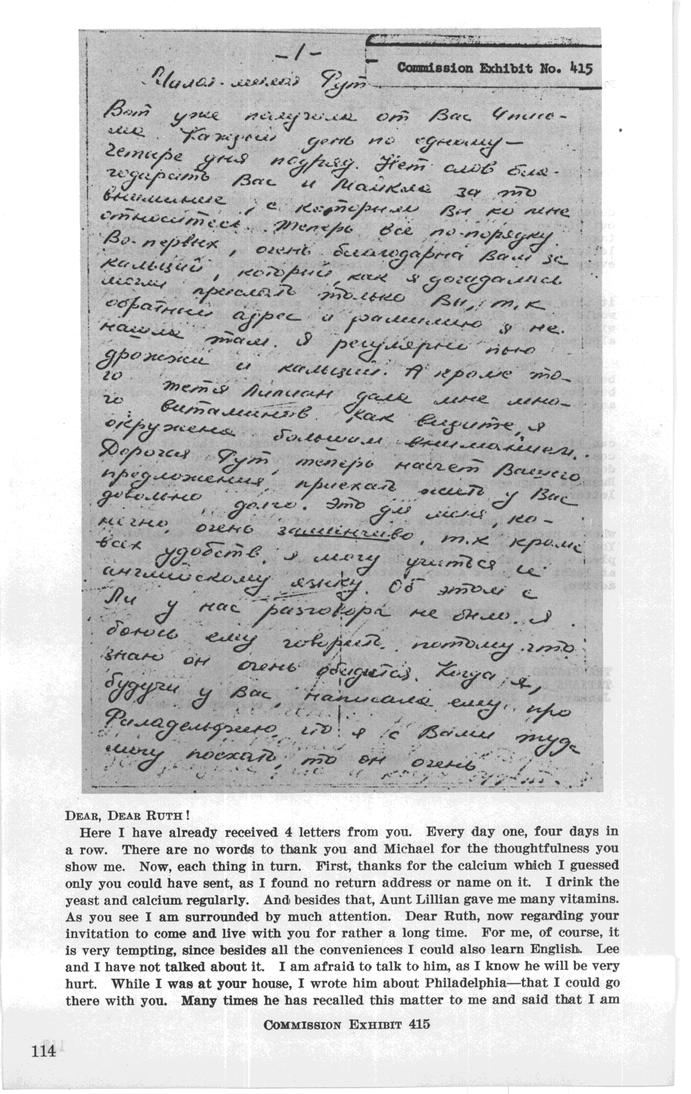 -1-
Commission Exhibit No. 415
Милая-милая Рут
Вот уже получила от Вас 4 пись-
ма. Каждый день по одному—
четыре дня подряд. Нет слов бла-
годарить Вас и Майкла за то
внимание, с которым Вы ко мне
относитесь. Теперь все по-порядку.
Во-первых, очень благодарна Вам за
кальций, который, как я догадалась
могли прислать только Вы, т.к
обратный адрес и фамилию я не
нашла там. Я регулярно пью
дрожжи и кальций. А кроме то-
го тетя Лилиан дала мне мно-
го витаминов. Как видите, я
окружена большим вниманием.
Дорогая Рут, теперь насчет Вашего
предложения, приехать жить у Вас
довольно долго. Это для меня, ко-
нечно, очень заманчиво, т.к кроме
всех удобств, я могу учиться и
английскому языку. Об этом с
Ли у нас разговора не было. Я
боюсь ему говорить, потому что
знаю он очень обидится. Когда я,
будучи у Вас, написала ему про
Филадельфию, что я с Вами туда
могу поехать, то он очень
DEAR, DEAR RUTH!
Here I have already received 4 letters from you. Every day one, four days in
a row. There are no words to thank you and Michael for the thoughtfulness you
show me. Now, each thing in turn. First, thanks for the calcium which I guessed
only you could have sent, as I found no return address or name on it. I drink the
yeast and calcium regularly. And besides that, Aunt Lillian gave me many vitamins.
As you see I am surrounded by much attention. Dear Ruth, now regarding your
invitation to come and live with you for rather a long time. For me, of course, it
is very tempting, since besides all the conveniences I could also learn English. Lee
and I have not talked about it. I am afraid to talk to him, as I know he will be very
hurt. While I was at your house, I wrote him about Philadelphia—that I could go
there with you. Many times he has recalled this matter to me and said that I am
COMMISSION EXHIBIT 415
114